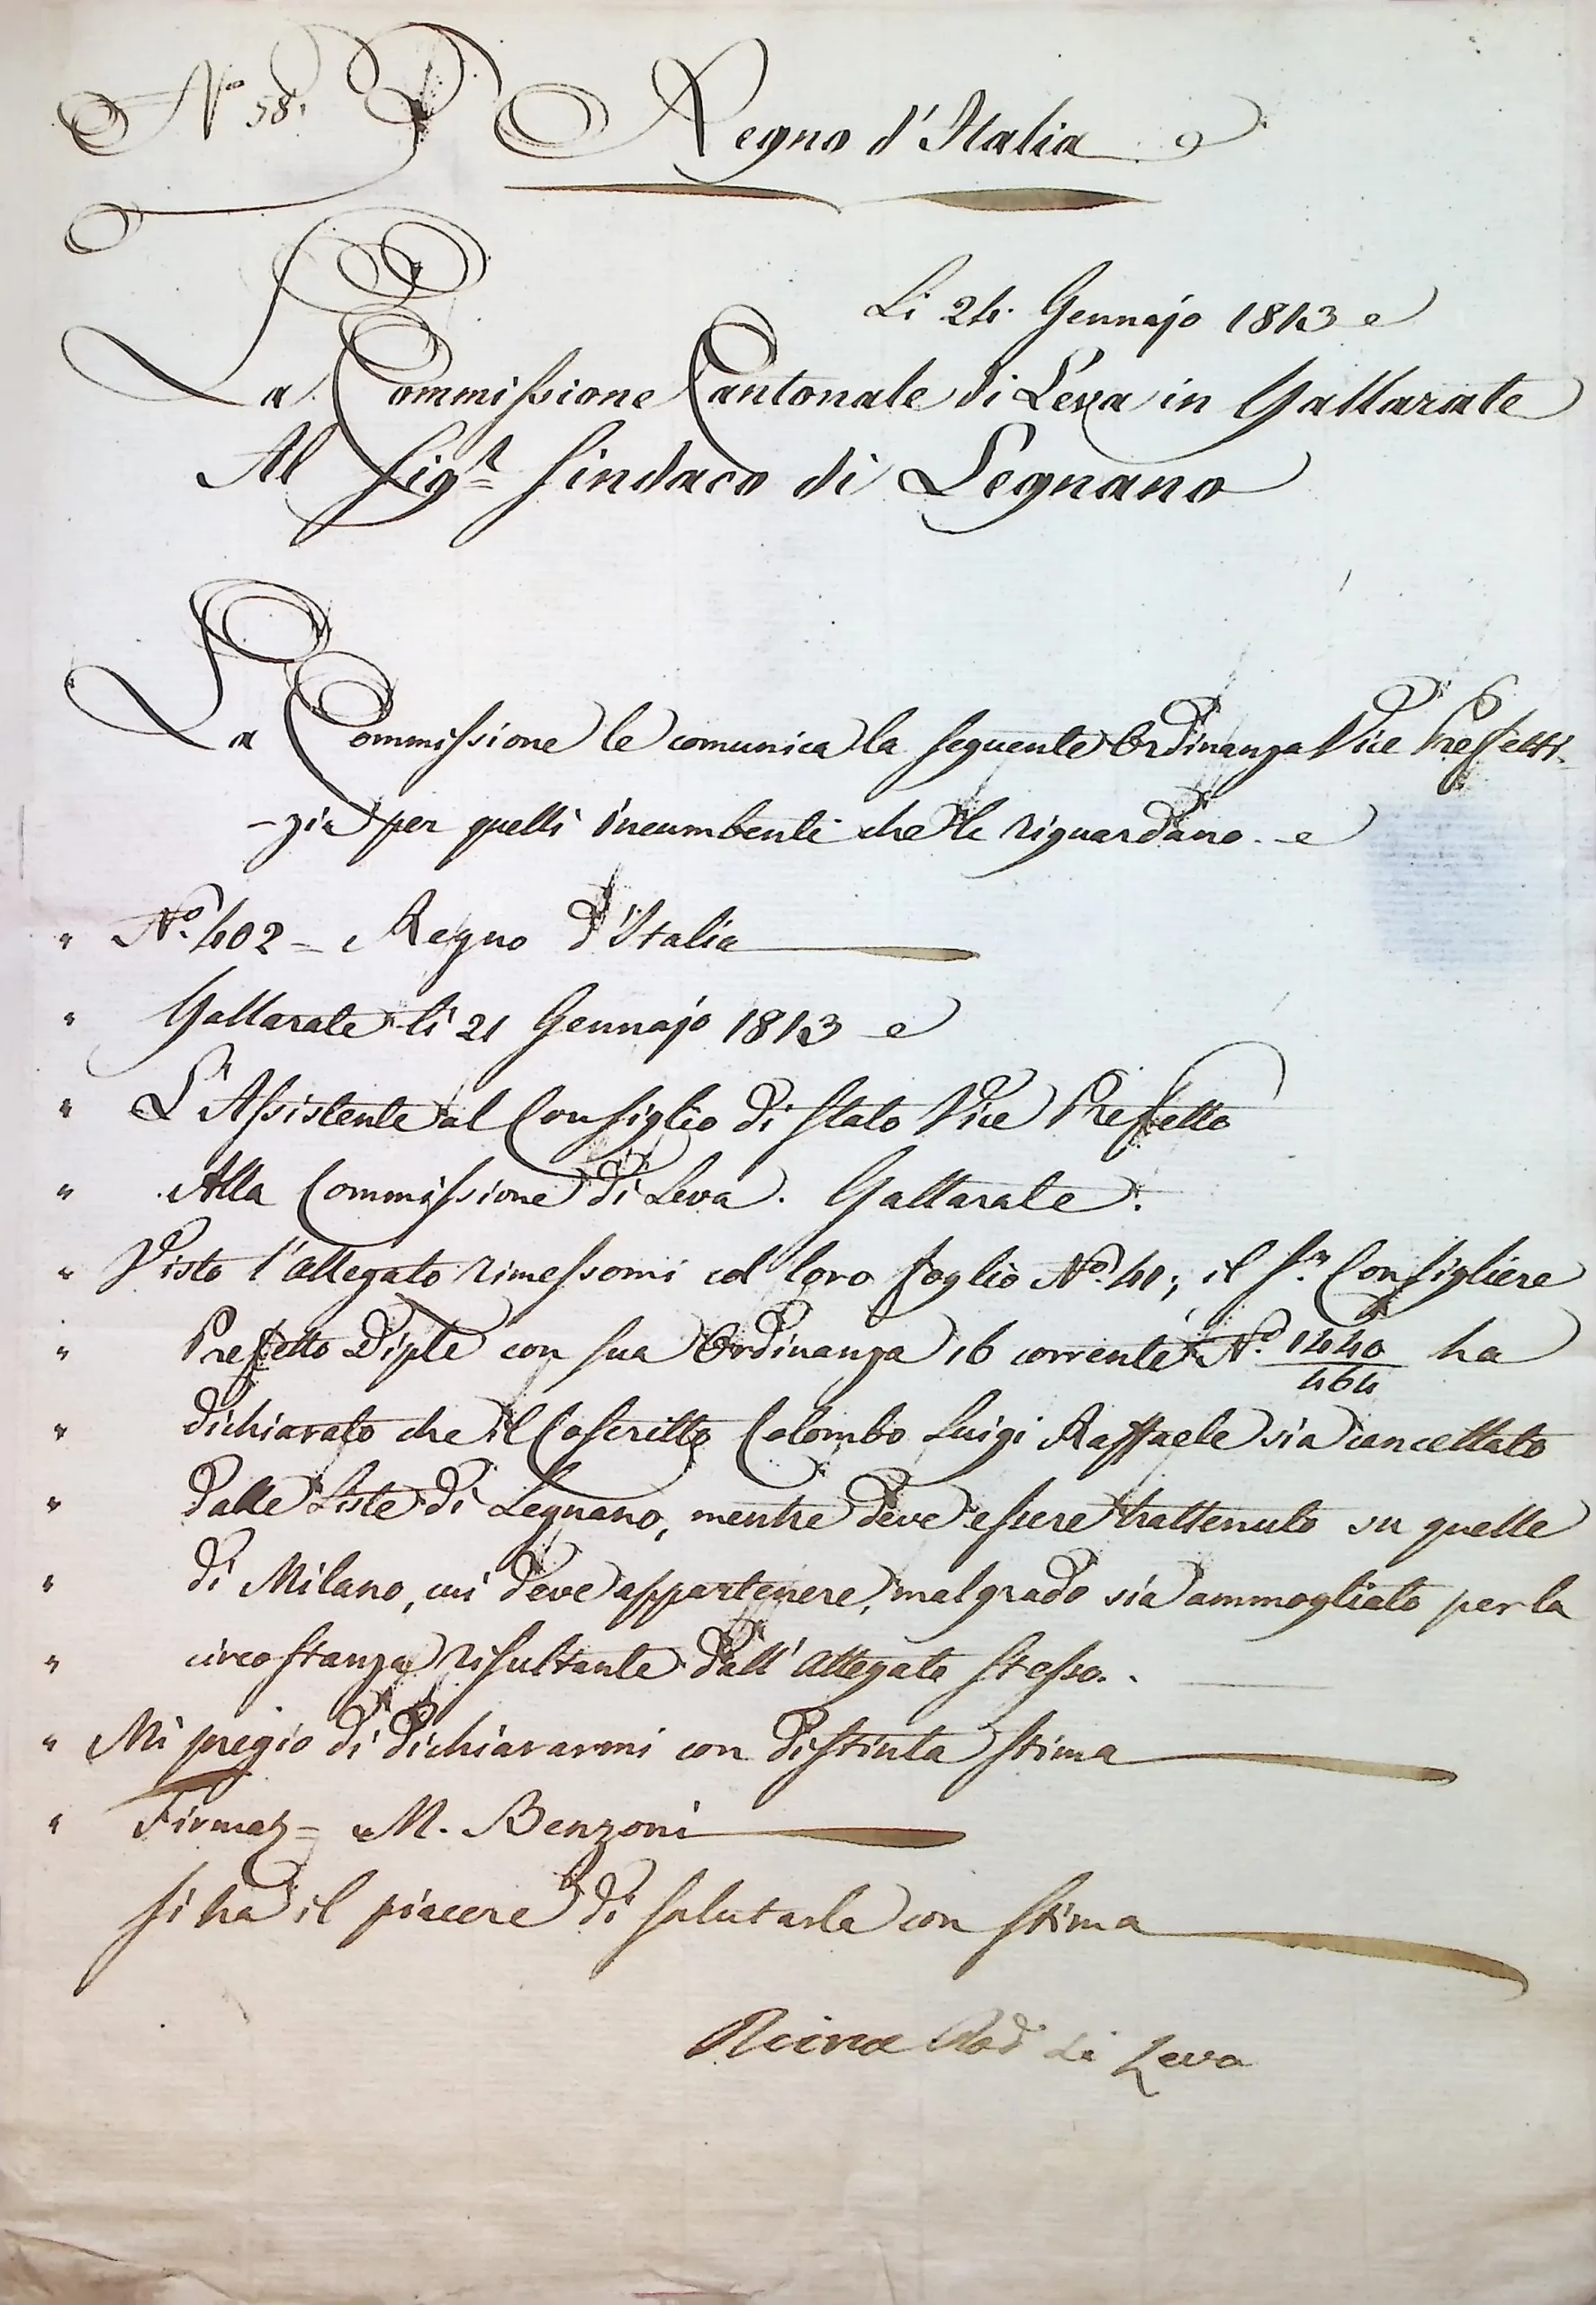 N.º 58.
Regno d'Italia
Li 24. Gennajo 1813
La Commissione Cantonale di Leva in Gallarate
Al Sig.r Sindaco di Legnano
La Commissione le comunica la seguente Ordinanza Vice Prefetti-
-zia per quelli incumbenti che le riguardano.
" N.º 402 = Regno d'Italia
" Gallarate li 21 Gennajo 1813
" L'Assistente al Consiglio di Stato Vice Prefetto
" Alla Commissione di Leva. Gallarate.
" Visto l'allegato rimessomi col loro foglio N.º 41; il S.r Consigliere
" Prefetto Diple con sua Ordinanza 16 corrente N.º 1440/464 ha
" dichiarato che il Coscritto Colombo Luigi Raffaele sia cancellato
" dalle Liste di Legnano, mentre deve essere trattenuto su quelle
" di Milano, cui deve appartenere, malgrado sia ammogliato per la
" circostanza risultante dall'allegato stesso.
" Mi pregio di dichiararmi con distinta stima
" Firmat = M. Benzoni
Si ha il piacere di salutarla con stima
Reina di Leva